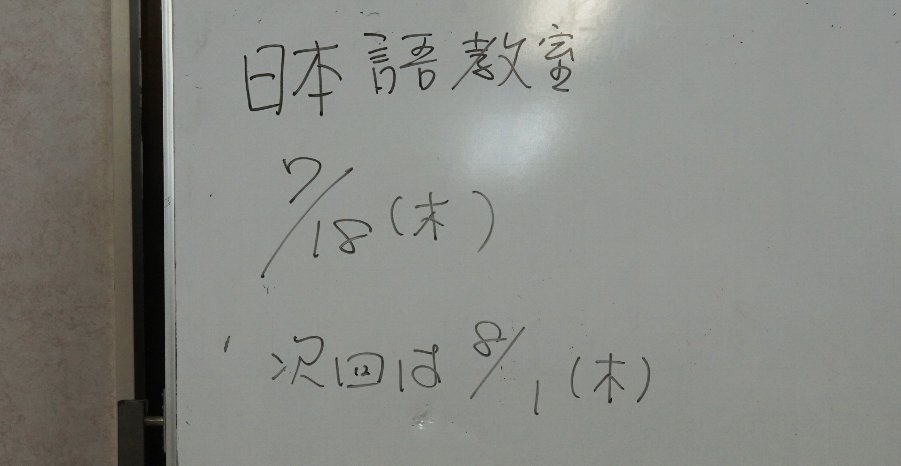 日本語教室
7/18(木)
次回は8/1(木)